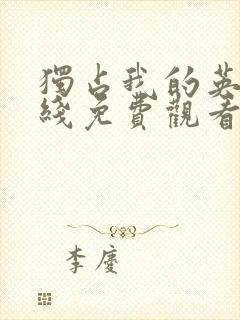 獨占我的英
綫免費觀看
李慶